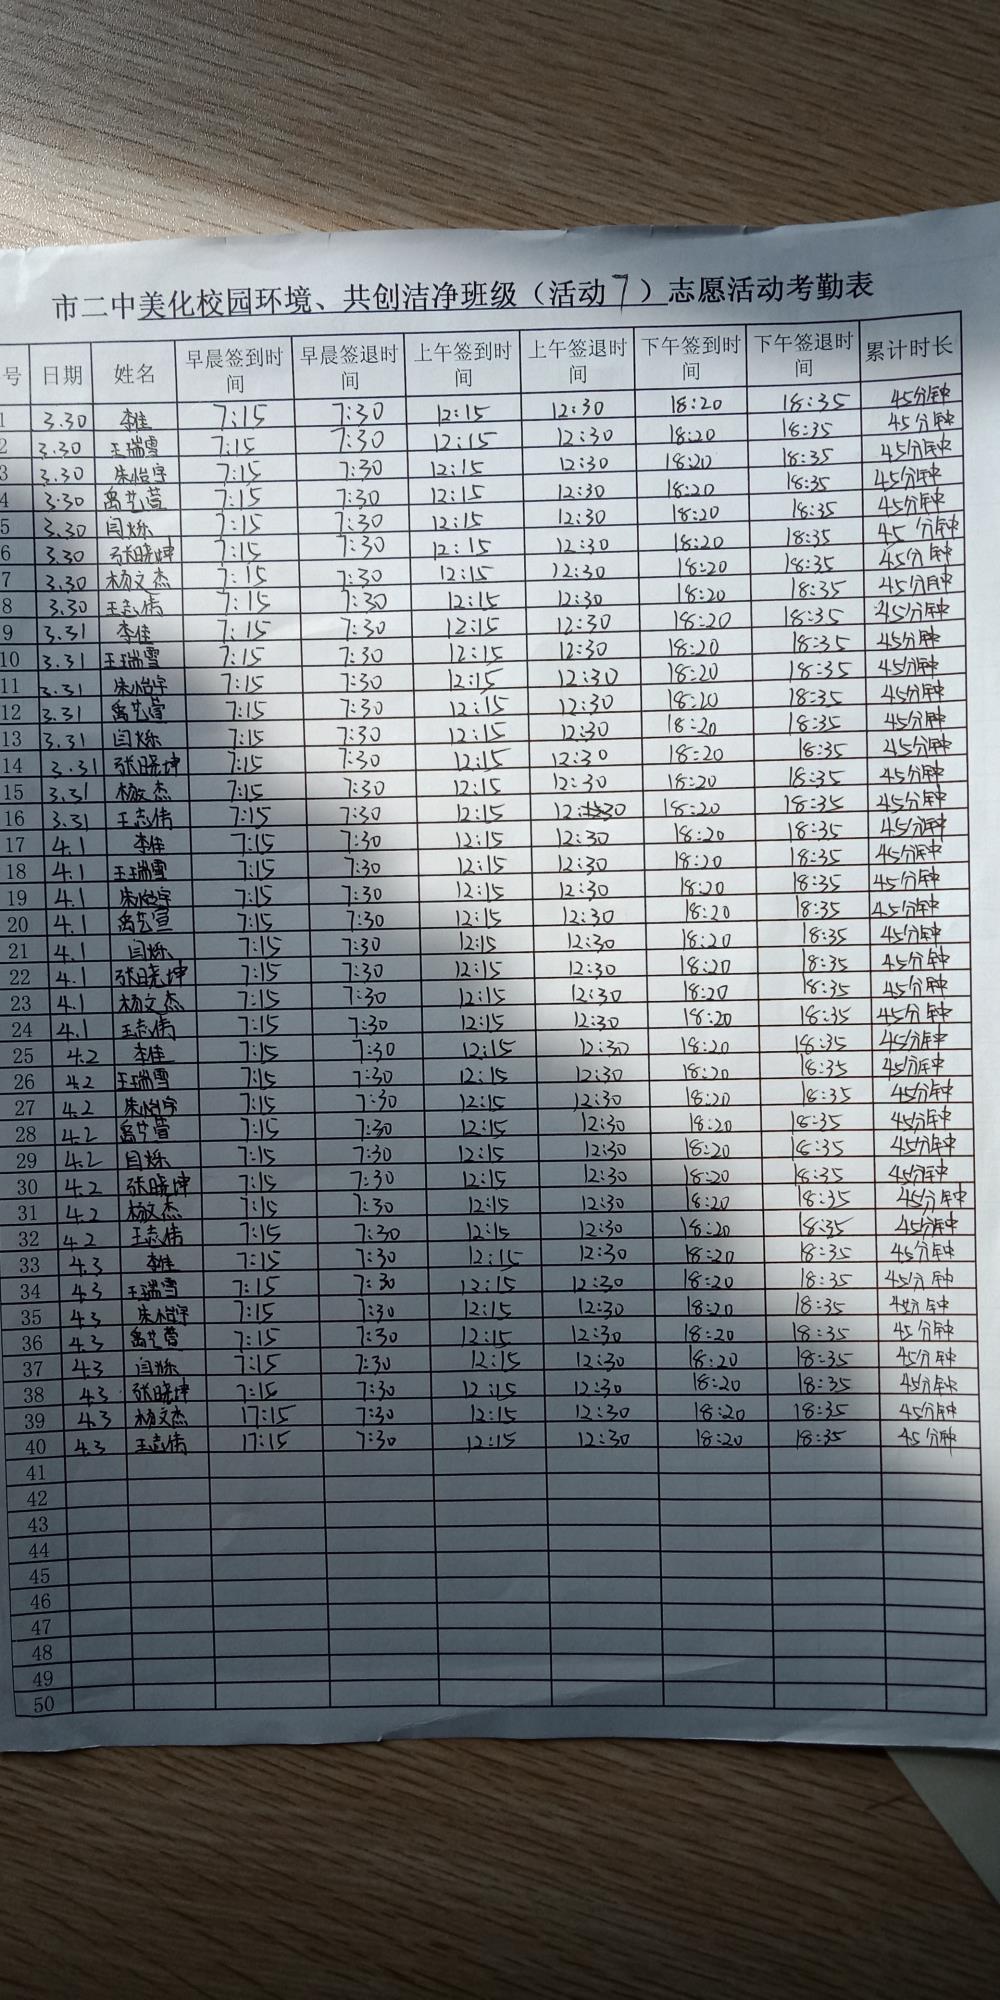 市二中美化校园环境、共创洁净班级（活动7）志愿活动考勤表
号 日期 姓名 早晨签到时间 早晨签退时间 上午签到时间 上午签退时间 下午签到时间 下午签退时间 累计时长
1 3.30 李佳 7:15 7:30 12:15 12:30 18:20 18:35 45分钟
2 3.30 王瑞雪 7:15 7:30 12:15 12:30 18:20 18:35 45分钟
3 3.30 朱怡宇 7:15 7:30 12:15 12:30 18:20 18:35 45分钟
4 3.30 禹艺萱 7:15 7:30 12:15 12:30 18:20 18:35 45分钟
5 3.30 闫烁 7:15 7:30 12:15 12:30 18:20 18:35 45分钟
6 3.30 张晓坤 7:15 7:30 12:15 12:30 18:20 18:35 45分钟
7 3.30 杨文杰 7:15 7:30 12:15 12:30 18:20 18:35 45分钟
8 3.30 王志伟 7:15 7:30 12:15 12:30 18:20 18:35 45分钟
9 3.31 李佳 7:15 7:30 12:15 12:30 18:20 18:35 45分钟
10 3.31 王瑞雪 7:15 7:30 12:15 12:30 18:20 18:35 45分钟
11 3.31 朱怡宇 7:15 7:30 12:15 12:30 18:20 18:35 45分钟
12 3.31 禹艺萱 7:15 7:30 12:15 12:30 18:20 18:35 45分钟
13 3.31 闫烁 7:15 7:30 12:15 12:30 18:20 18:35 45分钟
14 3.31 张晓坤 7:15 7:30 12:15 12:30 18:20 18:35 45分钟
15 3.31 杨文杰 7:15 7:30 12:15 12:30 18:20 18:35 45分钟
16 3.31 王志伟 7:15 7:30 12:15 12:30 18:20 18:35 45分钟
17 4.1 李佳 7:15 7:30 12:15 12:30 18:20 18:35 45分钟
18 4.1 王瑞雪 7:15 7:30 12:15 12:30 18:20 18:35 45分钟
19 4.1 朱怡宇 7:15 7:30 12:15 12:30 18:20 18:35 45分钟
20 4.1 禹艺萱 7:15 7:30 12:15 12:30 18:20 18:35 45分钟
21 4.1 闫烁 7:15 7:30 12:15 12:30 18:20 18:35 45分钟
22 4.1 张晓坤 7:15 7:30 12:15 12:30 18:20 18:35 45分钟
23 4.1 杨文杰 7:15 7:30 12:15 12:30 18:20 18:35 45分钟
24 4.1 王志伟 7:15 7:30 12:15 12:30 18:20 18:35 45分钟
25 4.2 李佳 7:15 7:30 12:15 12:30 18:20 18:35 45分钟
26 4.2 王瑞雪 7:15 7:30 12:15 12:30 18:20 18:35 45分钟
27 4.2 朱怡宇 7:15 7:30 12:15 12:30 18:20 18:35 45分钟
28 4.2 禹艺萱 7:15 7:30 12:15 12:30 18:20 18:35 45分钟
29 4.2 闫烁 7:15 7:30 12:15 12:30 18:20 18:35 45分钟
30 4.2 张晓坤 7:15 7:30 12:15 12:30 18:20 18:35 45分钟
31 4.2 杨文杰 7:15 7:30 12:15 12:30 18:20 18:35 45分钟
32 4.2 王志伟 7:15 7:30 12:15 12:30 18:20 18:35 45分钟
33 4.3 李佳 7:15 7:30 12:15 12:30 18:20 18:35 45分钟
34 4.3 王瑞雪 7:15 7:30 12:15 12:30 18:20 18:35 45分钟
35 4.3 朱怡宇 7:15 7:30 12:15 12:30 18:20 18:35 45分钟
36 4.3 禹艺萱 7:15 7:30 12:15 12:30 18:20 18:35 45分钟
37 4.3 闫烁 7:15 7:30 12:15 12:30 18:20 18:35 45分钟
38 4.3 张晓坤 7:15 7:30 12:15 12:30 18:20 18:35 45分钟
39 4.3 杨文杰 17:15 7:30 12:15 12:30 18:20 18:35 45分钟
40 4.3 王志伟 17:15 7:30 12:15 12:30 18:20 18:35 45分钟
41
42
43
44
45
46
47
48
49
50